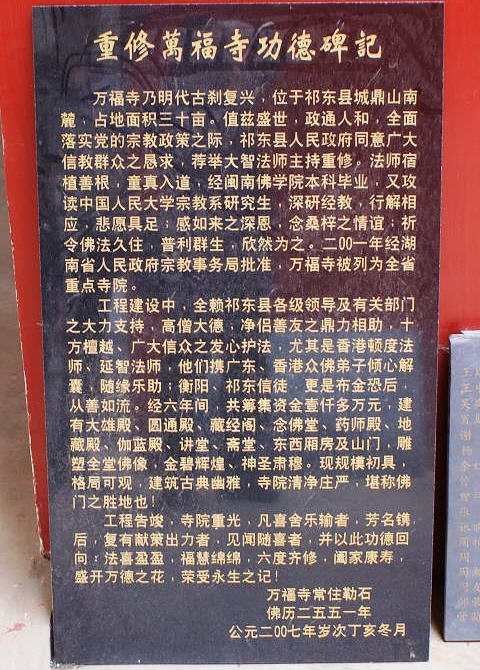 重修萬福寺功德碑記
万福寺乃明代古刹复兴，位于祁东县城鼎山南
麓，占地面积三十亩。值兹盛世，政通人和，全面
落实党的宗教政策之际，祁东县人民政府同意广大
信教群众之恳求，荐举大智法师主持重修。法师宿
植善根，童真入道，经闽南佛学院本科毕业，又攻
读中国人民大学宗教系研究生，深研经教，行解相
应，悲愿具足；感如来之深恩，念桑梓之情谊；祈
令佛法久住，普利群生，欣然为之。二00一年经湖
南省人民政府宗教事务局批准，万福寺被列为全省
重点寺院。
工程建设中，全赖祁东县各级领导及有关部门
之大力支持，高僧大德，净侣善友之鼎力相助，十
方檀越、广大信众之发心护法，尤其是香港顿度法
师、延智法师，他们携广东、香港众佛弟子倾心解
囊，随缘乐助；衡阳、祁东信徒，更是布金恐后，
从善如流。经六年间，共筹集资金壹仟多万元，建
有大雄殿、圆通殿、藏经阁、念佛堂、药师殿、地
藏殿、伽蓝殿、讲堂、斋堂、东西厢房及山门，雕
塑全堂佛像，金碧辉煌、神圣肃穆。现规模初具，
格局可观，建筑古典幽雅，寺院清净庄严，堪称佛
门之胜地也！
工程告竣，寺院重光，凡喜舍乐输者，芳名镌
后，复有献策出力者，见闻随喜者，并以此功德回
向：法喜盈盈，福慧绵绵，六度齐修，阖家康寿，
盛开万德之花，荣受永生之记！
万福寺常住勒石
佛历二五五一年
公元二00七年岁次丁亥冬月